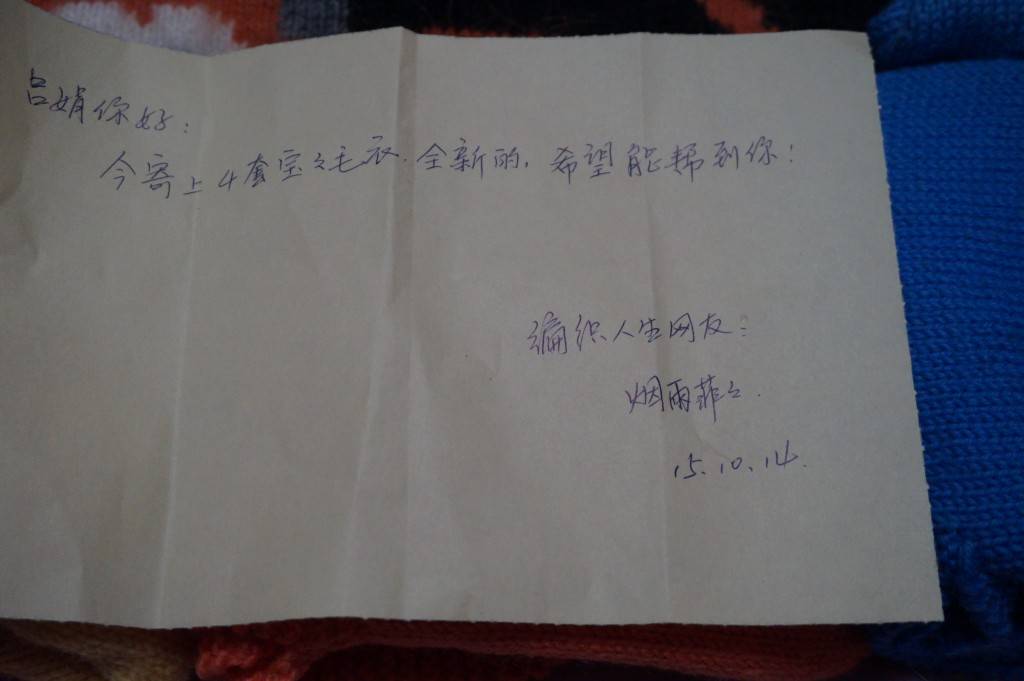 吕娟你好:
今寄上4套宝々毛衣.全新的,希望能帮到你!
编织人生网友:
烟雨菲々.
15.10.14.